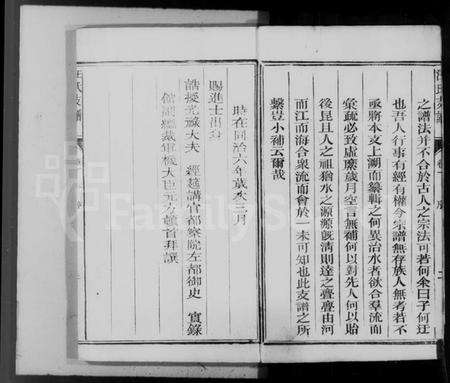 之譜法并不合於古人之宗法可若何余曰子何迂
也吾人行事有經有權今宗譜無存族人無考若不
亟將本支上溯而纂輯之何異治水者欲合羣流而
彙疏必致虛縻歲月空言無補何以對先人何以貽
後昆且人之祖猶水之源源既清則達之疊疊由河
而江而海合衆流而會於一未可知也此支譜之所
繫豈小補云爾哉
時在同治六年歲次 月
賜進士出身
誥授光祿大夫 經筵講官都察院左都御史 實錄
館副總裁軍機大臣 頓首拜讓